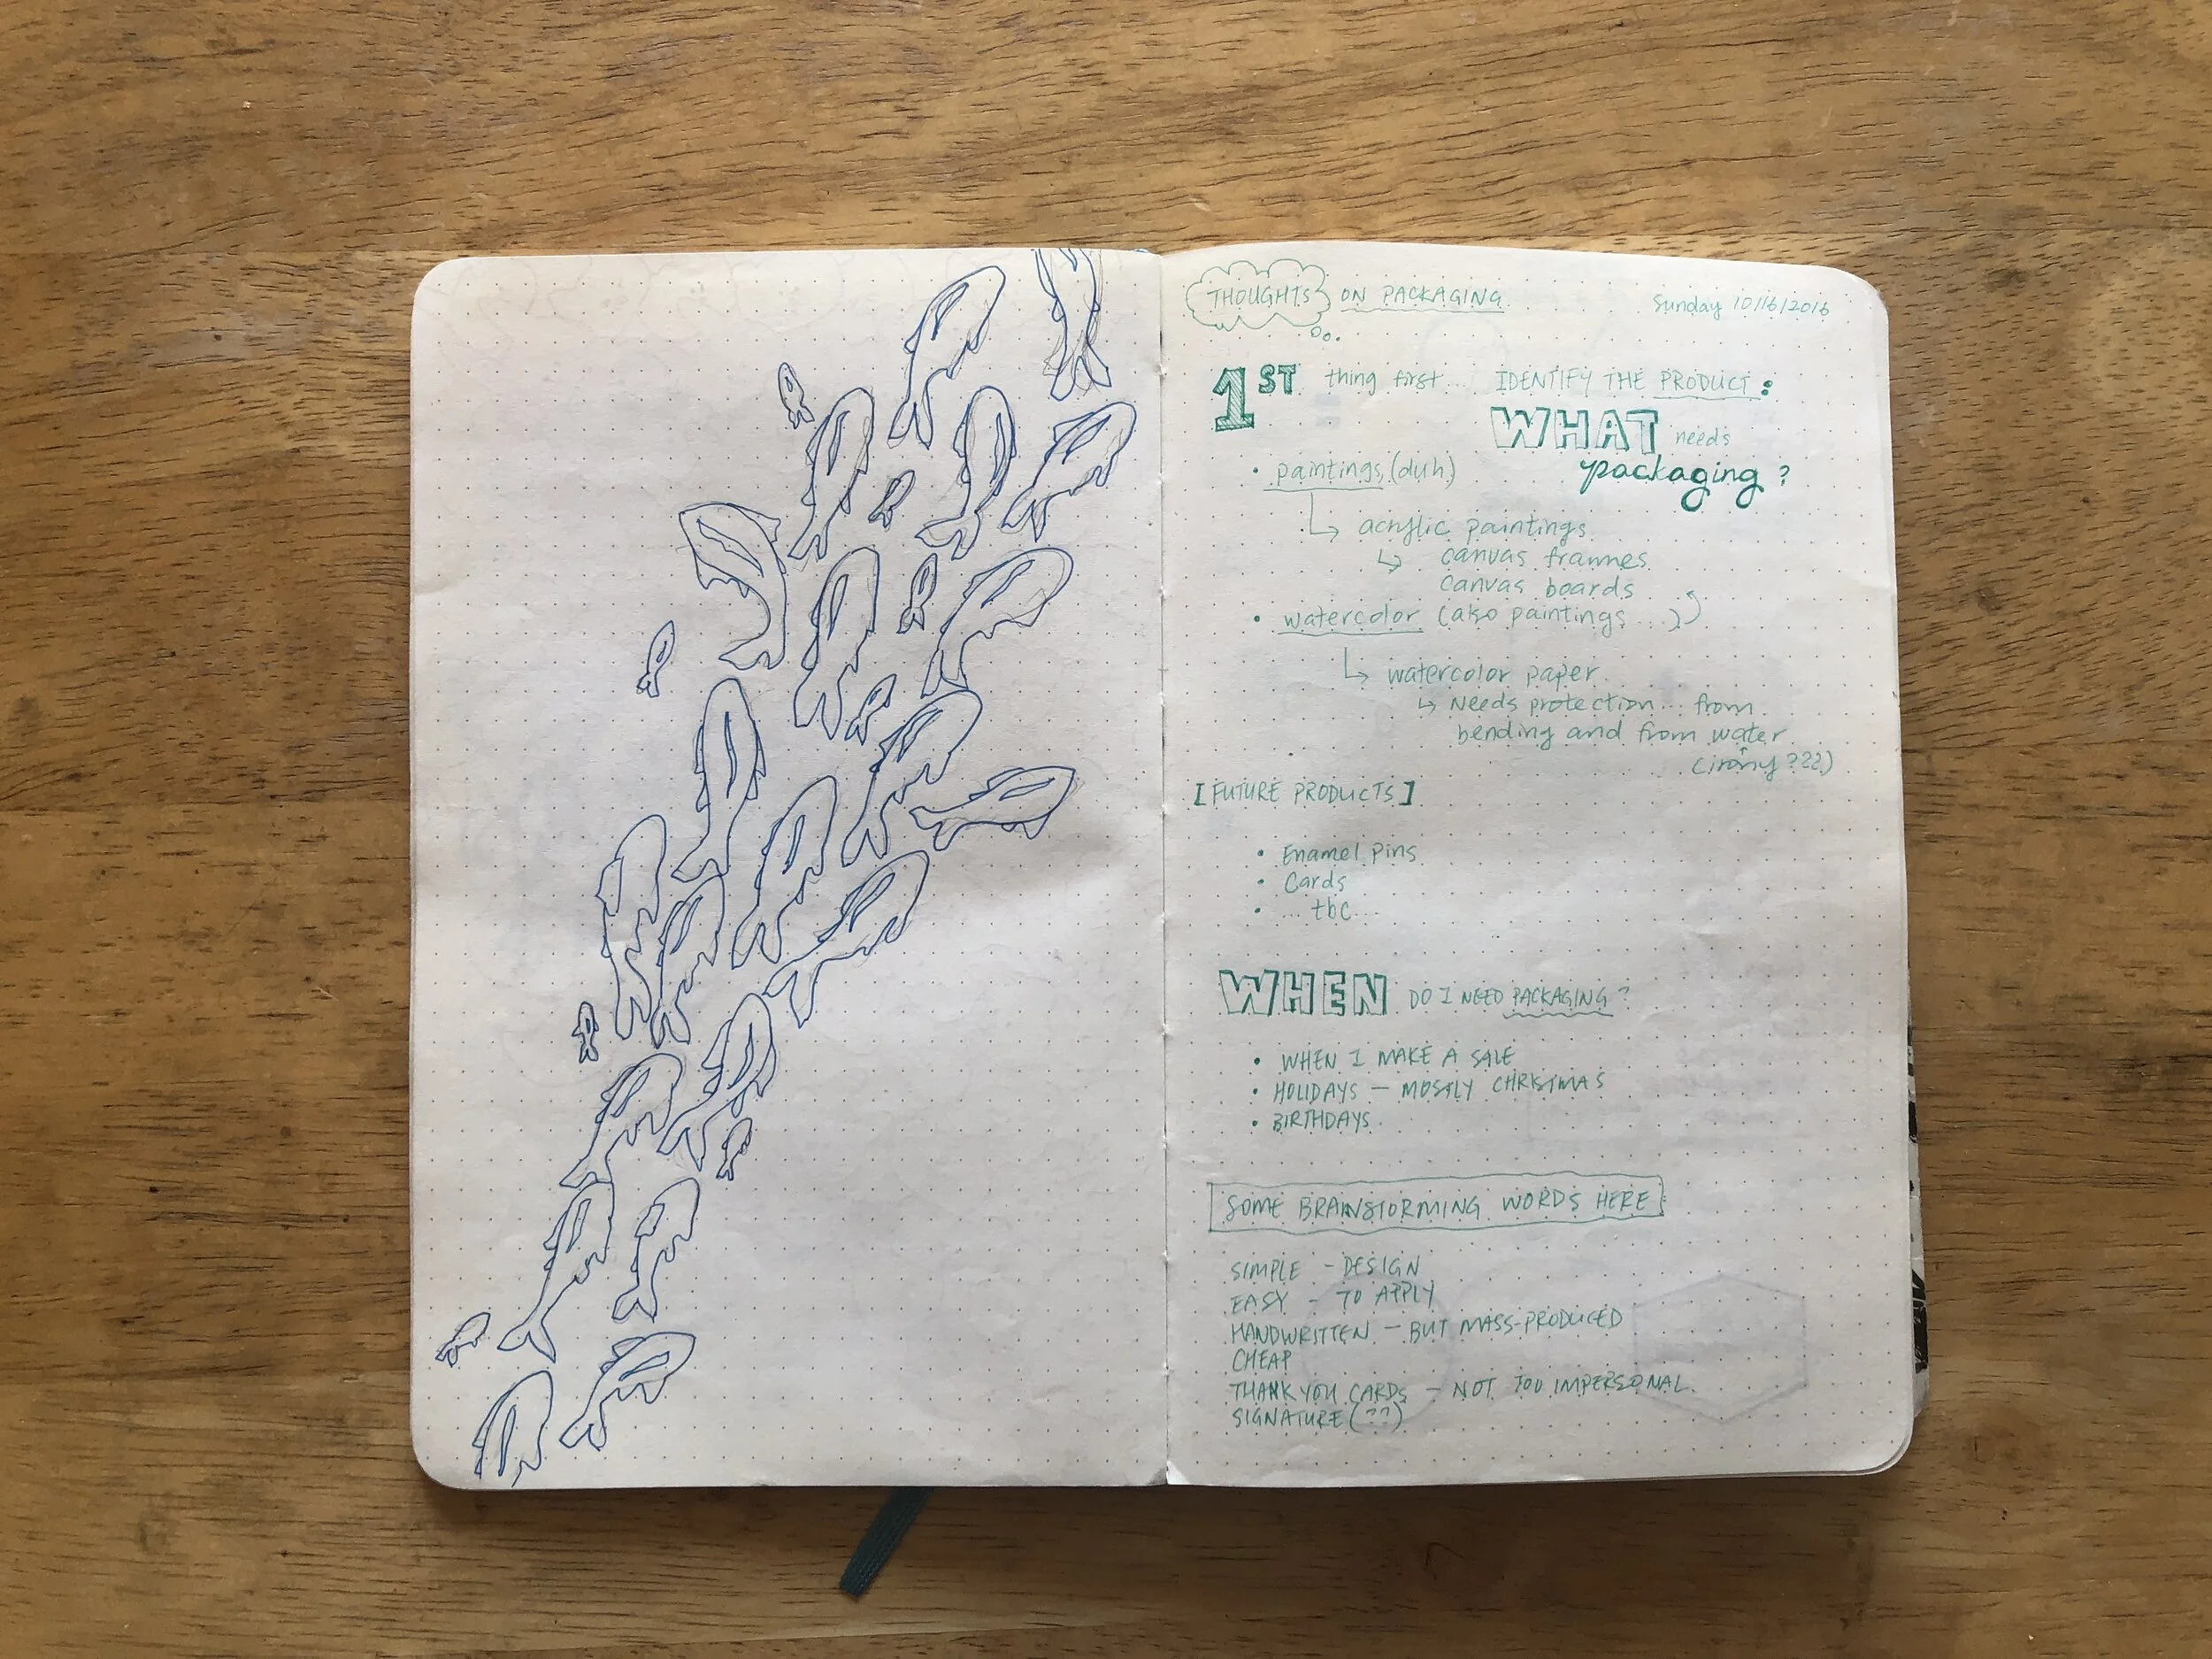 THOUGHTS ON PACKAGING
Sunday 10/16/2016
1ST thing first... IDENTIFY THE PRODUCT:
WHAT needs
packaging?
• paintings (duh)
↳ acrylic paintings
↳ canvas frames
canvas boards
• watercolor (also paintings...)
↳ watercolor paper
↳ Needs protection... from
bending and from water
(irony???)
[FUTURE PRODUCTS]
• Enamel pins
• Cards
• ... tbc...
WHEN DO I NEED PACKAGING?
• WHEN I MAKE A SALE
• HOLIDAYS — MOSTLY CHRISTMAS
• BIRTHDAYS
SOME BRAINSTORMING WORDS HERE
SIMPLE - DESIGN
EASY - TO APPLY
HANDWRITTEN — BUT MASS-PRODUCED
CHEAP
THANK YOU CARDS — NOT TOO IMPERSONAL.
SIGNATURE (??)